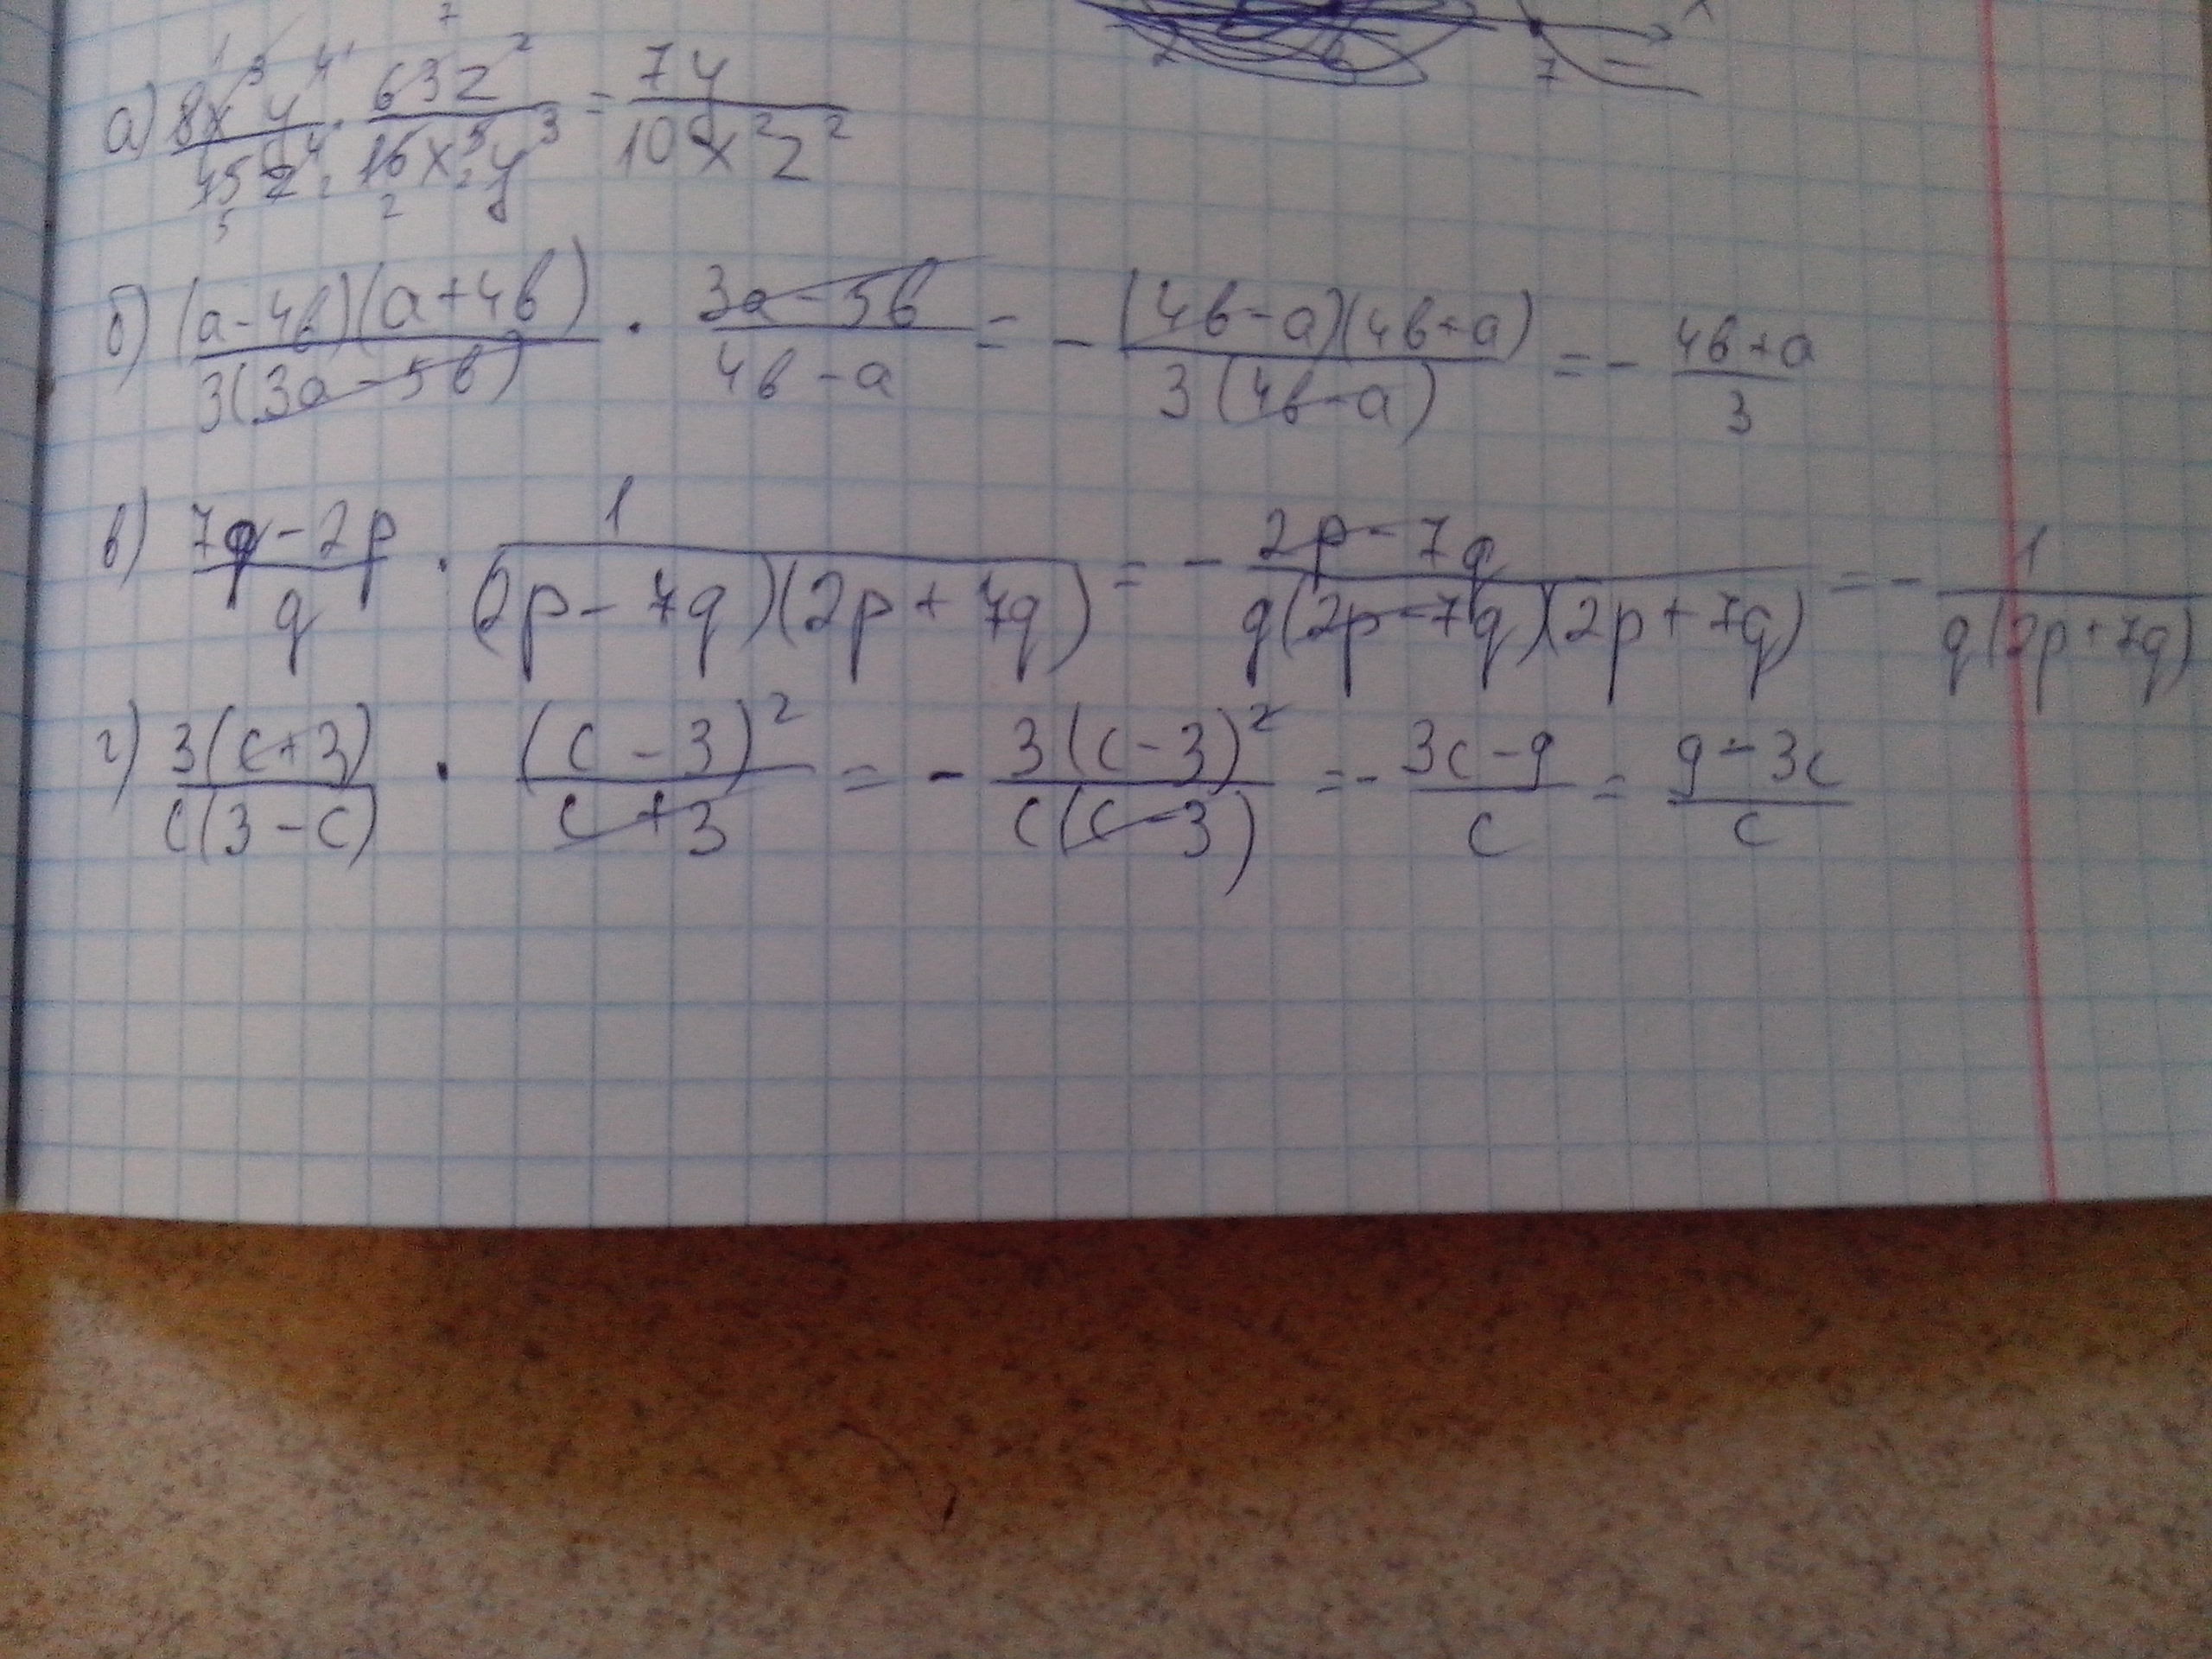 2 6 7 x
а) 8x³y⁴/45z⁴ · 63z²/16x⁵y³ = 7y/10x²z²
б) (a-4b)(a+4b)/3(3a-5b) · 3a-5b/4b-a = - (4b-a)(4b+a)/3(4b-a) = - 4b+a/3
в) 7q-2p/q · 1/(2p-7q)(2p+7q) = - 2p-7q/q(2p-7q)(2p+7q) = - 1/q(2p+7q)
г) 3(c+3)/c(3-c) · (c-3)²/c+3 = - 3(c-3)²/c(c-3) = - 3c-9/c = 9-3c/c